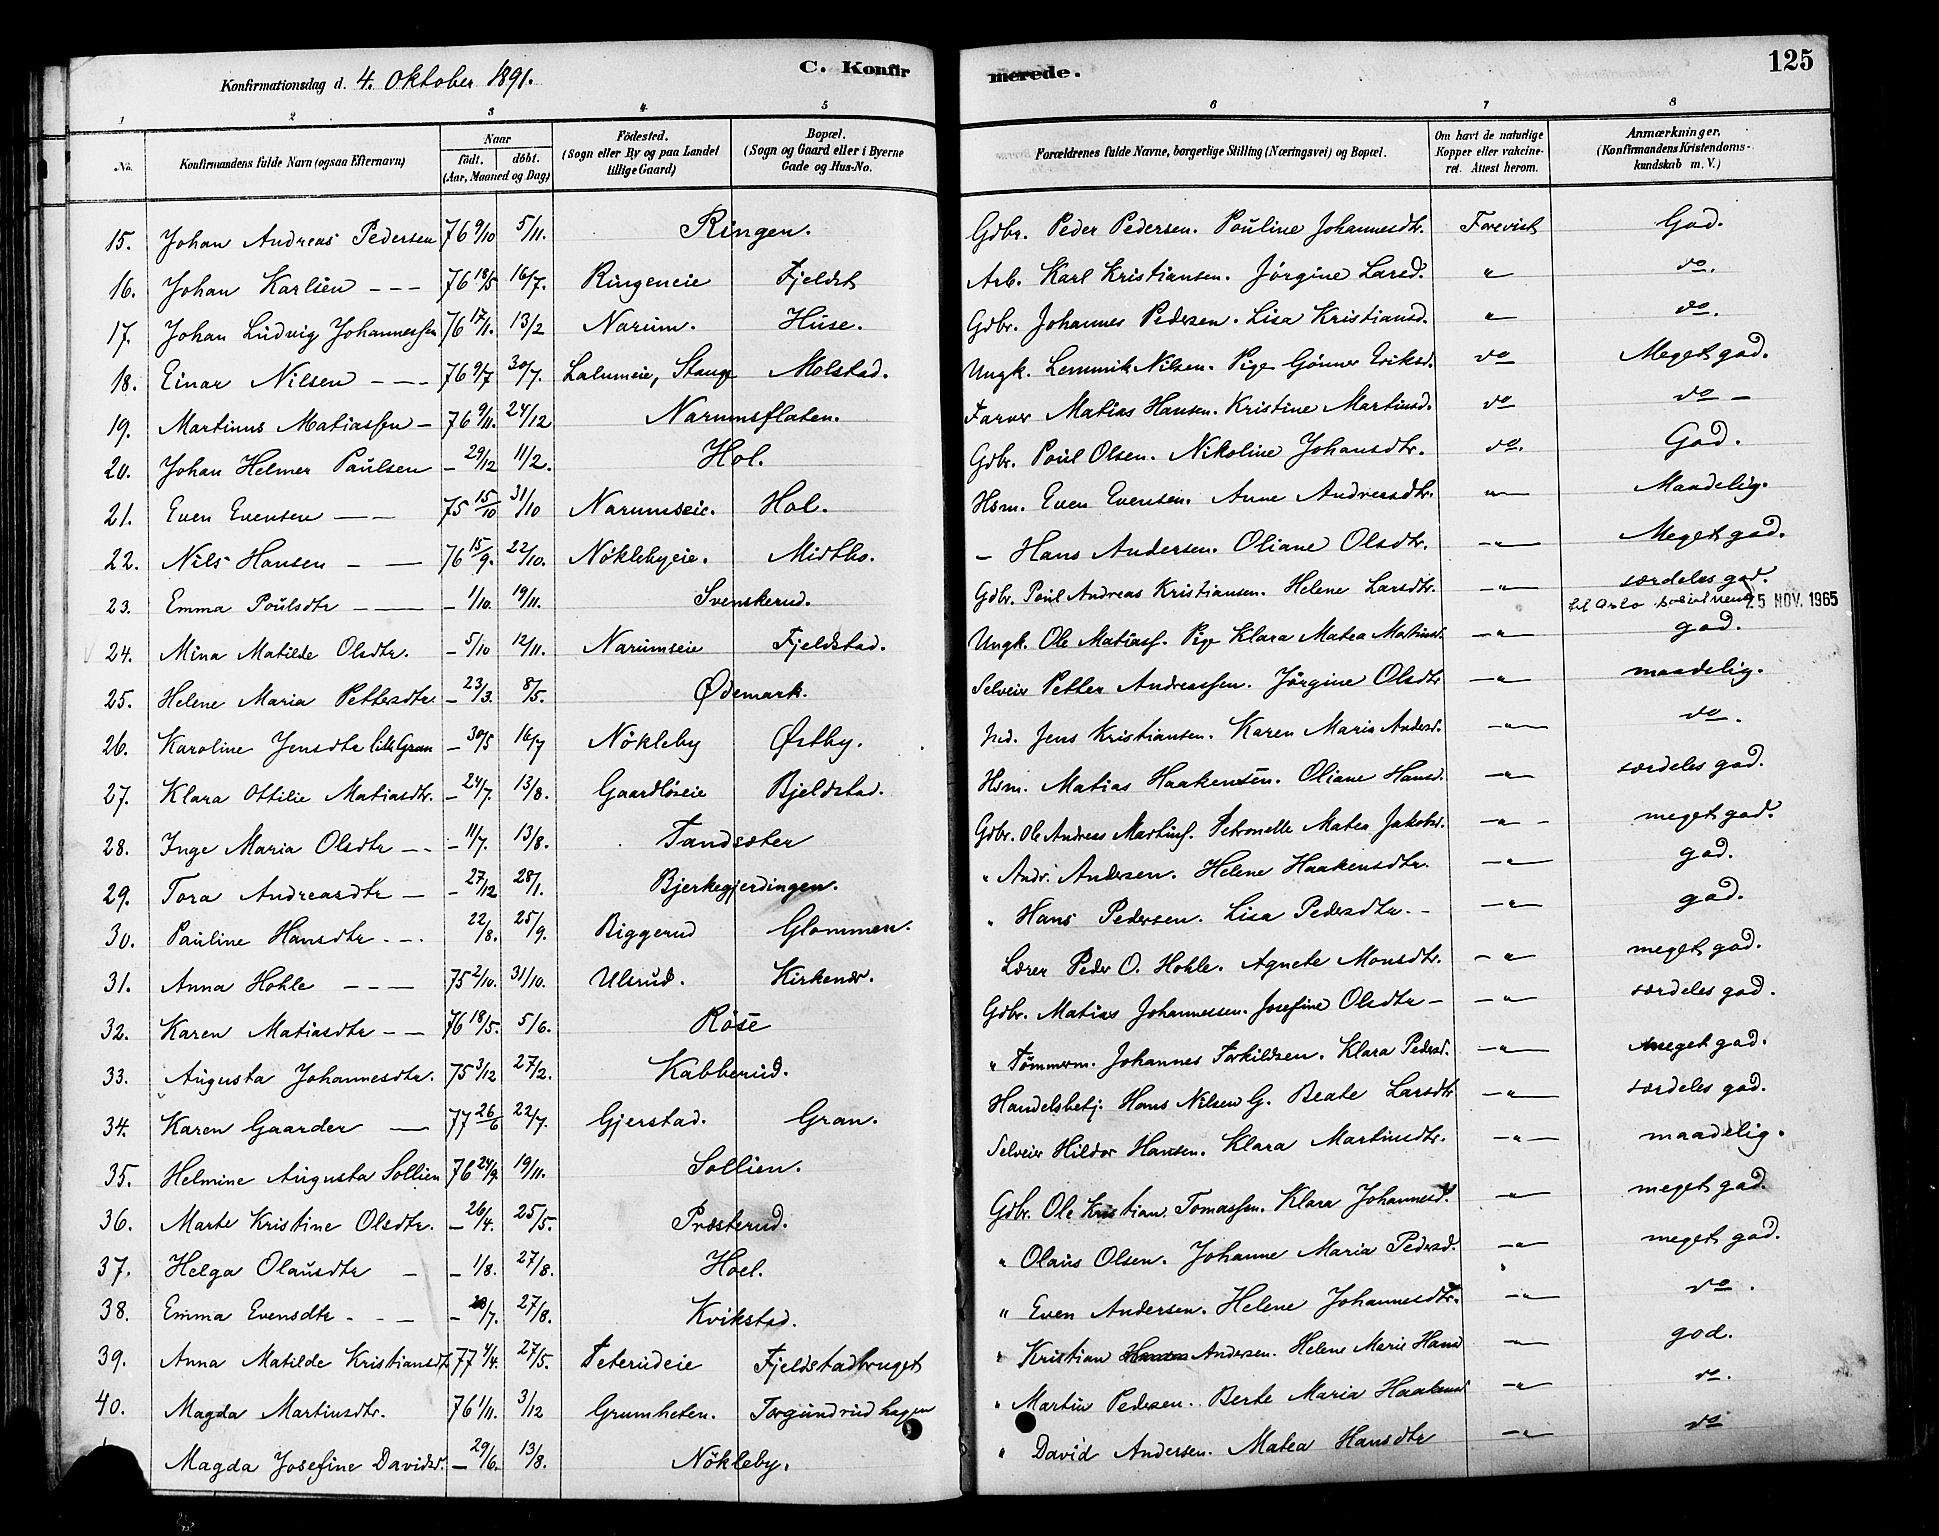 125
Konfirmationsdag d. 4. Oktober 1891. C. Konfirmerede.
1 2 3 4 5 6 7 8
No. Konfirmandens fulde Navn (ogsaa Efternavn) Naar födt. döbt. (Aar, Maaned og Dag) Födested. (Sogn eller By og paa Landet tillige Gaard) Bopæl. (Sogn og Gaard eller i Byerne Gade og Hus-No. Forældrenes fulde Navne, borgerlige Stilling (Næringsvei) og Bopæl. Om havt de naturlige Kopper eller vakcineret. Attest herom. Anmærkninger. (Konfirmandens Kristendomskundskab m. V.)
15. Johan Andreas Pedersen 76 9/10 5/11. Ringen. Gdbr. Peder Pedersen. Pouline Johannesdtr. Forevist God.
16. Johan Karlsen - - - 76 18/5 16/7. Ringeneie Fjeldst Arb. Karl Kristiansen. Jörgine Larsd. " do.
17. Johan Ludvig Johannessen 76 17/11. 13/2 Narum. Huse. Gdbr. Johannes Pedersen. Lisa Kristiansd. " do.
18. Einar Nilsen - - - 76 9/7 30/7. Lalumeie, Stange Molstad. Ungk. Lemmik Nilsen. Pige Gönner Eriksd. do Meget god.
19. Martinus Matiassen - 76 9/11. 24/12 Narumsflaten. Farver Matias Hansen. Kristine Martinsd. do do -
20. Johan Helmer Paulsen - 29/12 11/2. Hol. Gdbr. Poul Olsen. Nikoline Johansdtr. do. God.
21. Even Evensen - - 75 15/10 31/10 Narumseie. Hol. Hsm. Even Evensen. Anne Andreasdtr. " Maadelig.
22. Nils Hansen - - 76 15/9. 22/10. Nöklebyeie. Midtbo. - Hans Andersen. Oliane Olsdtr. -"- Meget god.
23. Emma Poulsdtr - - 1/10. 19/11. Svenskerud. Gdbr. Poul Andreas Kristiansen. Helene Larsdtr. -"- særdeles god.
25 NOV. 1965
24. Mina Matilde Olsdtr. - 5/10 12/11. Narumseie Fjeldstad. Ungk. Ole Matiass. Pige Klara Matea Matiasd. -"- god.
25. Helene Maria Pettersdtr. - 23/3. 8/5. Ødemark. Selveier Petter Andreassen. Jörgine Olsdtr -"- maadelig.
26. Karoline Jensdtr lille Gran - 30/5 16/7 Nökleby Østby. Ind. Jens Kristiansen. Karen Maria Andersd. -"- do.
27. Klara Ottilie Matiasdtr. - 24/7. 13/8. Gaardlöseie Bjeldstad. Hsm. Matias Haakensen. Oliane Hansd. -"- særdeles god.
28. Inge Maria Olsdtr - - - 11/7. 13/8. Tandsæter Gdbr. Ole Andreas Martins. Petronelle Matea Jakobsd. -"- meget god.
29. Tora Andreasdtr - - 27/12 28/1. Bjerkegjerdingen. " Andr. Andersen. Helene Haakensdtr. -"- god.
30. Pauline Hansdtr - - . 22/8. 25/9. Biggerud Glommen. " Hans Pedersen. Lisa Pedersdtr. - -"- god.
31. Anna Hohle - - - 75 2/10. 31/10. Ulsrud. Kirkenær. Lærer Peder O. Hohle. Agnete Monsdtr. -"- meget god.
32. Karen Matiasdtr - - 76 18/5. 5/6. Röse Gdbr. Matias Johannessen. Josefine Olsdtr - -"- særdeles god.
33. Augusta Johannesdtr. 75 3/12 27/2. Kabberud. " Tömmerm. Johannes Torkildsen. Klara Pedersd. -"- meget god.
34. Karen Gaarder - 77 26/6 22/7. Gjerstad. Gran. Handelsbetj. Hans Nilsen G. Beate Larsdtr -"- særdeles god.
35. Helmine Augusta Sollien 76 24/9. 19/11. Sollien. Selveier Hildor Hansen. Klara Martinsdtr. -"- maadelig.
36. Marte Kristine Olsdtr. - 26/4. 25/5. Præsterud. Gdbr. Ole Kristian Tomassen. Klara Johannesd. -"- meget god.
37. Helga Olausdtr - - 1/8. 27/8. Hoel. " Olaus Olsen. Johanne Maria Pedersd. -"- meget god.
38. Emma Evensdtr - - - /7. 27/8. Kvikstad. " Even Andersen. Helene Johannesdtr. -"- do.
39. Anna Matilde Kristiansdt 77 4/4. 27/5. Feterudeie Fjeldstadbruget " Kristian Andersen. Helene Marie Hansd -"- god.
40. Magda Martinsdtr. 76 1/11. 3/12 Grumheten. Torgundrudhagen " Martin Pedersen. Berte Maria Haakensd -"- do.
Magda Josefine Davidsd. - 29/6. 13/8. Nökleby. " David Andersen. Matea Hansdtr -"- do